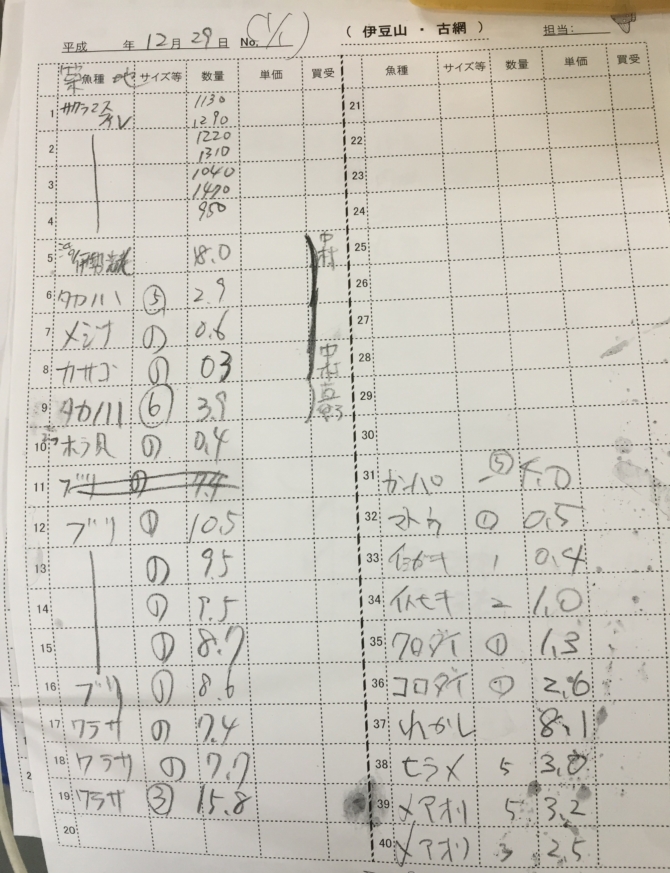 平成 年 12月 29日 No. (1/1)
( 伊豆山 ・ 古網 ) 担当:
魚種 サイズ等 数量 単価 買受
1 サクラマス 1130
1290
2 1220
1310
3 1040
1490
4 950
5 伊勢海老 18.0 中村
6 タカノハ ⑤ 2.9
7 メジナ ① 0.6
8 カサゴ ① 03 中村
9 タカノハ ⑥ 3.9
10 ホラ貝 ① 0.4
11 ブリ ① 7.4
12 ブリ ① 10.5
13 ① 9.5
14 ① 9.5
15 ① 8.7
16 ブリ ① 8.6
17 ワラサ ① 7.4
18 ワラサ ① 7.7
19 ワラサ ③ 15.8
20
魚種 サイズ等 数量 単価 買受
21
22
23
24
25
26
27
28
29
30
31 カンパ ⑤
32 マトウ ① 0.5
33 イシガキ 1 0.4
34 2 1.0
35 クロダイ ① 1.3
36 コロダイ ① 2.6
37 8.1
38 ヒラメ 5 3.0
39 メアオリ 5 3.2
40 メアオリ 3 2.5